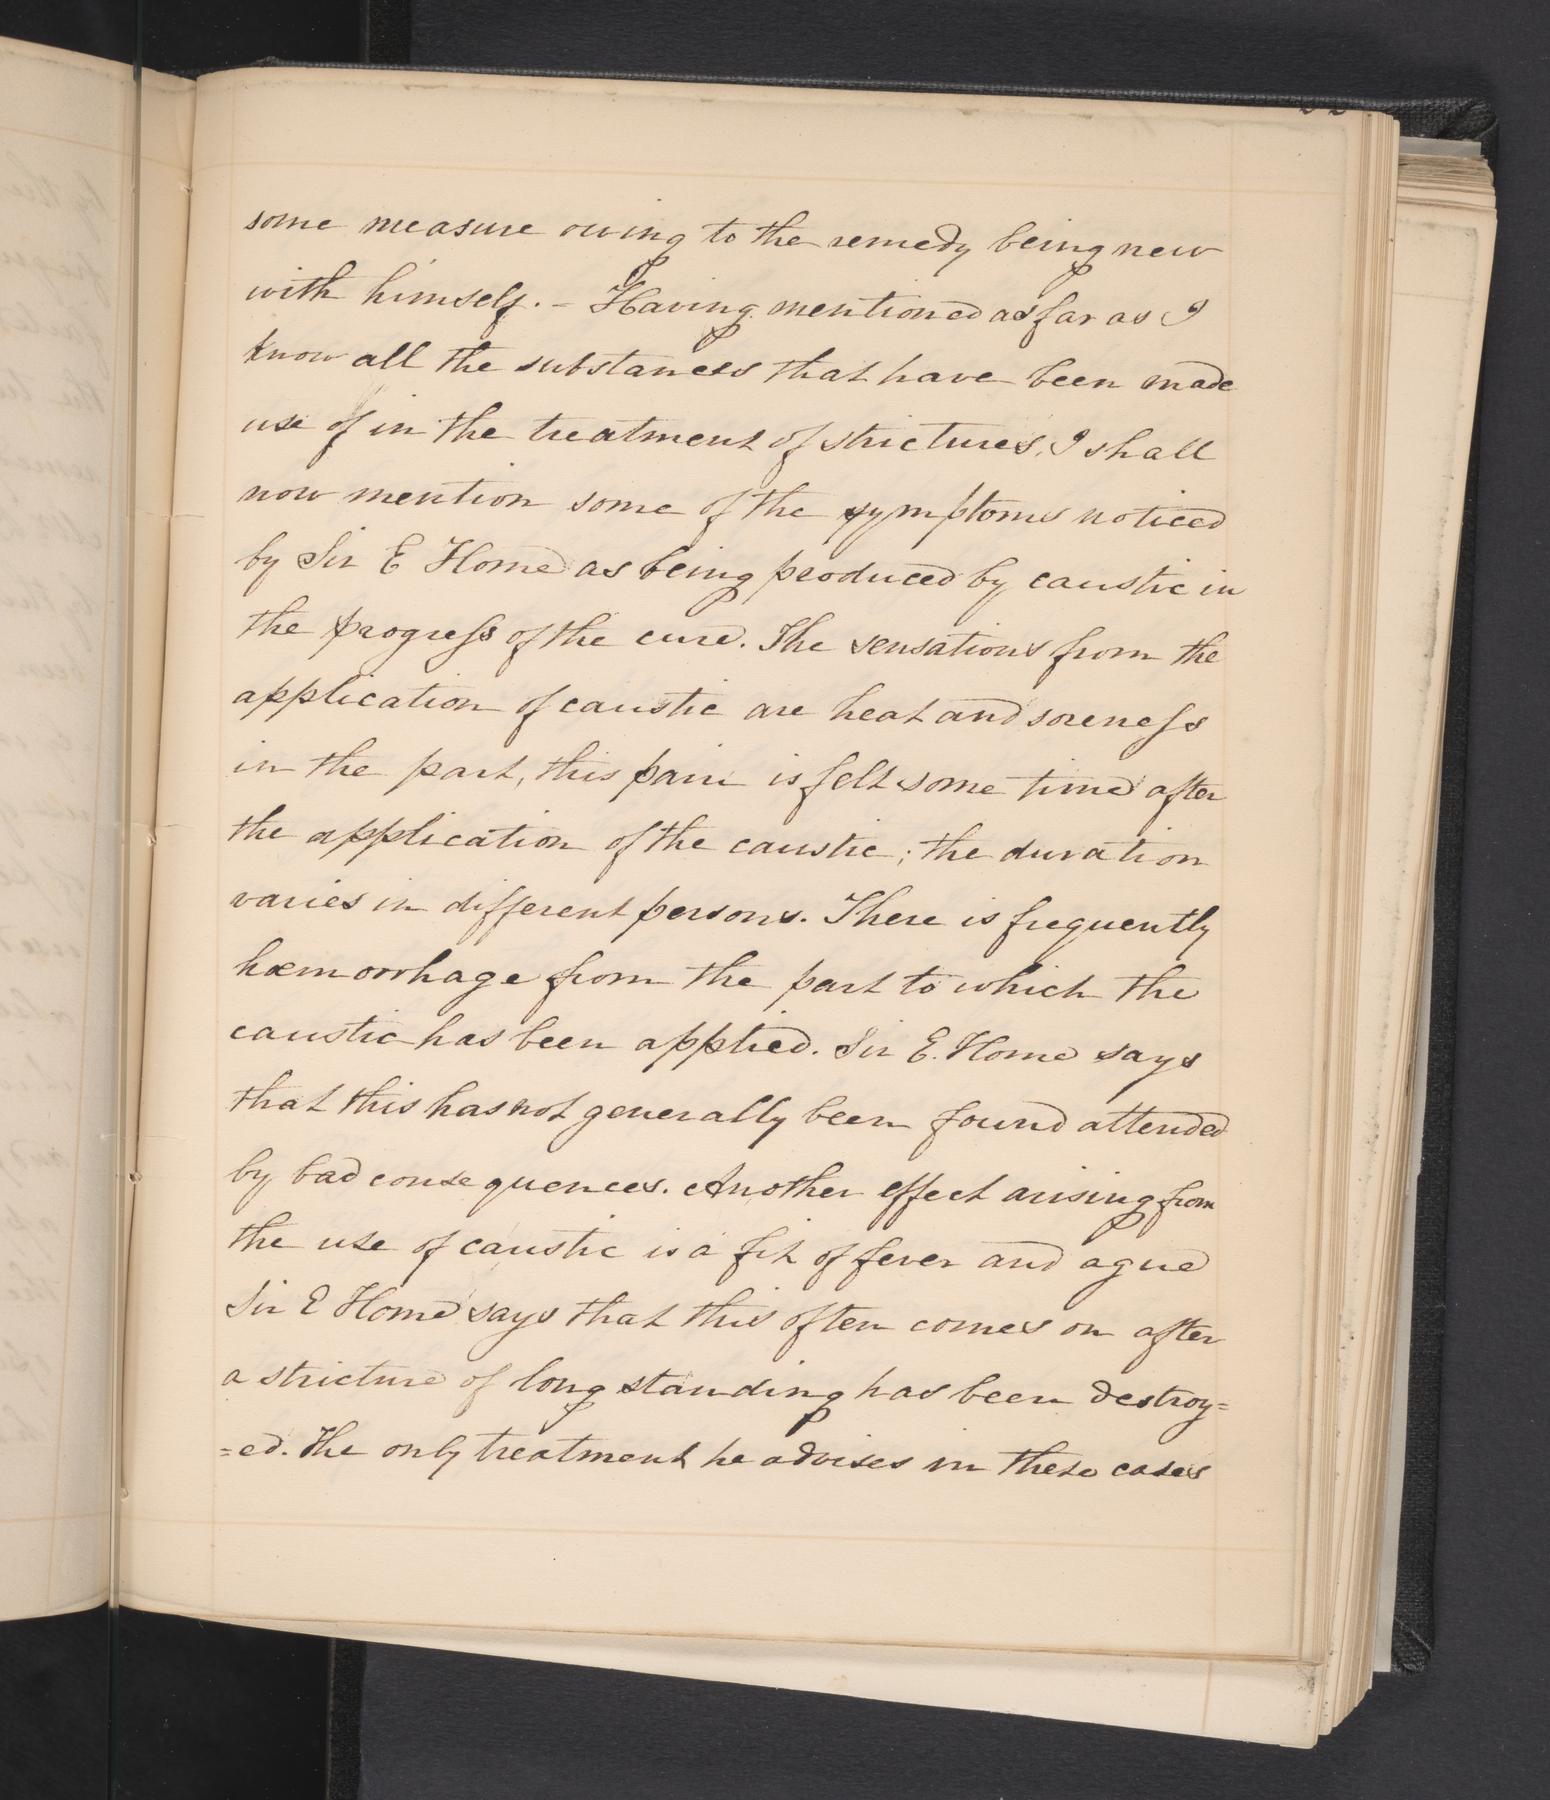 some measure owing to the remedy being new
with himself. - Having mentioned as far as I
know all the substances that have been made
use of in the treatment of strictures, I shall
now mention some of the symptoms noticed
by Sir E Home as being produced by caustic in
the progress of the cure. The sensations from the
application of caustic are heat and soreness
in the part, this pain is felt some time after
the application of the caustic; the duration
varies in different persons. There is frequently
hæmorrhage from the part to which the
caustic has been applied. Sir E. Home says
that this has not generally been found attended
by bad consequences. Another effect arising from
the use of caustic is a fit of fever and ague
Sir E Home says that this often comes on after
a stricture of long standing has been destroy=
=ed. The only treatment he advises in these cases